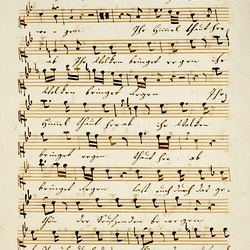 regen Ihr Himmel thaut her
ab Ihr Wolken bringet regen ihr
Wolken bringet regen Ihr
Himmel thaut herab ihr Wolken
bringet regen thaut her ab
bringet regen last euch durch das ge
der Seufzenden bewegen